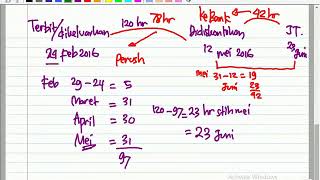 Terbit/dikeluarkan 120 hr 78 hr ke Bank 42 hr J.T.
Perush Didiskontikan
29 Feb 2016 12 mei 2016 23 juni
Feb 29-24 = 5 mei 31-12 = 19
Maret = 31 Juni 23
42
April = 30 120-97 = 23 hr stlh mei
Mei = 31 = 23 Juni
97